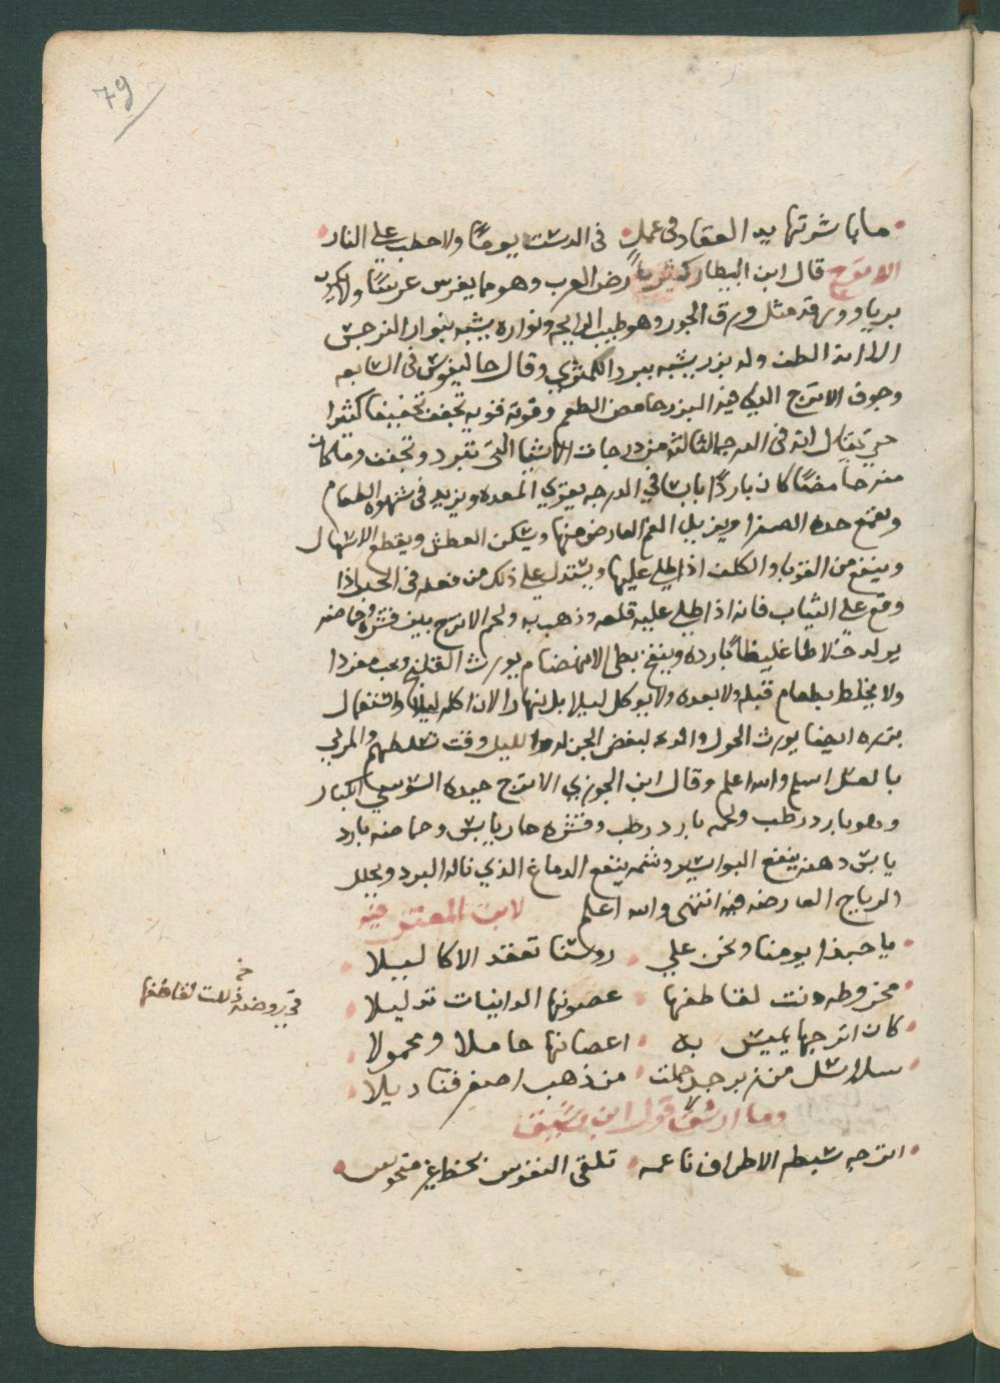 79
ما باشرتها يد العقاد في عمل في الدست يوما ولا حطب علي النار
الاترج قال ابن البيطار كثير بارض العرب وهو مما يغرس غرسا ولا يكون
بريا وورقه مثل ورق الجوز وهو طيب الرايحه ونواره يشبه بنوار النرجس
الا انه الطف وله بزر يشبه ببزر الكمثري وقال جالينوس في السابعه
وجوف الاترج الذي فيه البزر حامض الطعم وقوته قويه تجفف تجفيفا كثيرا
حتي يقال انه في الدرجه الثالثه من درجات الاشيا التي تبرد وتجفف وما كان
منه حامضا كان باردا يابسا في الدرجه يقوي المعده ويزيد في شهوه الطعام
ويقمع حده الصفرا ويزيل الغم العارض منها ويسكن العطش ويقطع الاسهال
وينفع من القوبا والكلف اذا طلي عليها ويستدل علي ذلك من فعله في الحبر اذا
وقع علي الثياب فانه اذا طلي عليه قلعه وذهب به ولحم الاترج بين قشره وحامضه
يولد خلاطا غليظا بارده وينفخ بطي الانهضام يورث القلنج ويجب مفردا
ولا يخلط بطعام قبله ولا بعده ولا يوكل ليلا بل نهارا لان اكله ليلا واشتمال
يورث الحول والده لبعض الجن له الليل وقت تسلطهم والمربي
بالعسل اسلم والله اعلم وقال ابن الجوزي الاترج جيده السوسي الكبار
وهو بارد رطب ولحمه بارد رطب وقشره حار يابس وحماضه بارد
يابس دهنه ينفع البواسير وشمه ينفع الدماغ الذي ناله البرد ويحلل
الرياح العارضه فيه انتهي والله اعلم لابن المعتز فيه
يا حبذا يومنا ونحن علي روسنا تعقد الاكاليلا
مخروطه دنت لقاطفها غصونها الدانيات تدليلا
في روضه ذللت لقاطفها
كان اترجها يميس به اغصانها حاملا ومحمولا
سلاسل من زبرجد حملت من ذهب اصفر قناديلا
وما ارشق قول ابن رشيق
اترجه سبطه الاطراف ناعمه تلقي النفوس بحظ غير منحوس